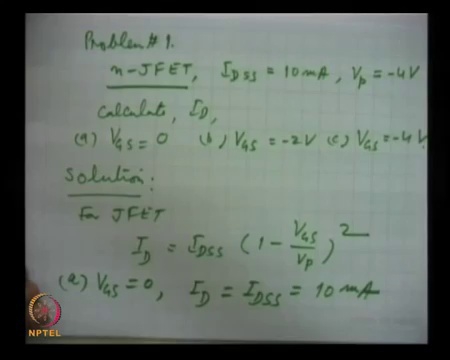 Problem # 1.
n-JFET, I_DSS = 10 mA, V_p = -4V
Calculate, I_D,
(a) V_GS = 0 (b) V_GS = -2V (c) V_GS = -4V.
Solution:
For JFET
I_D = I_DSS (1 - V_GS/V_p)^2
(a) V_GS = 0, I_D = I_DSS = 10 mA
NPTEL